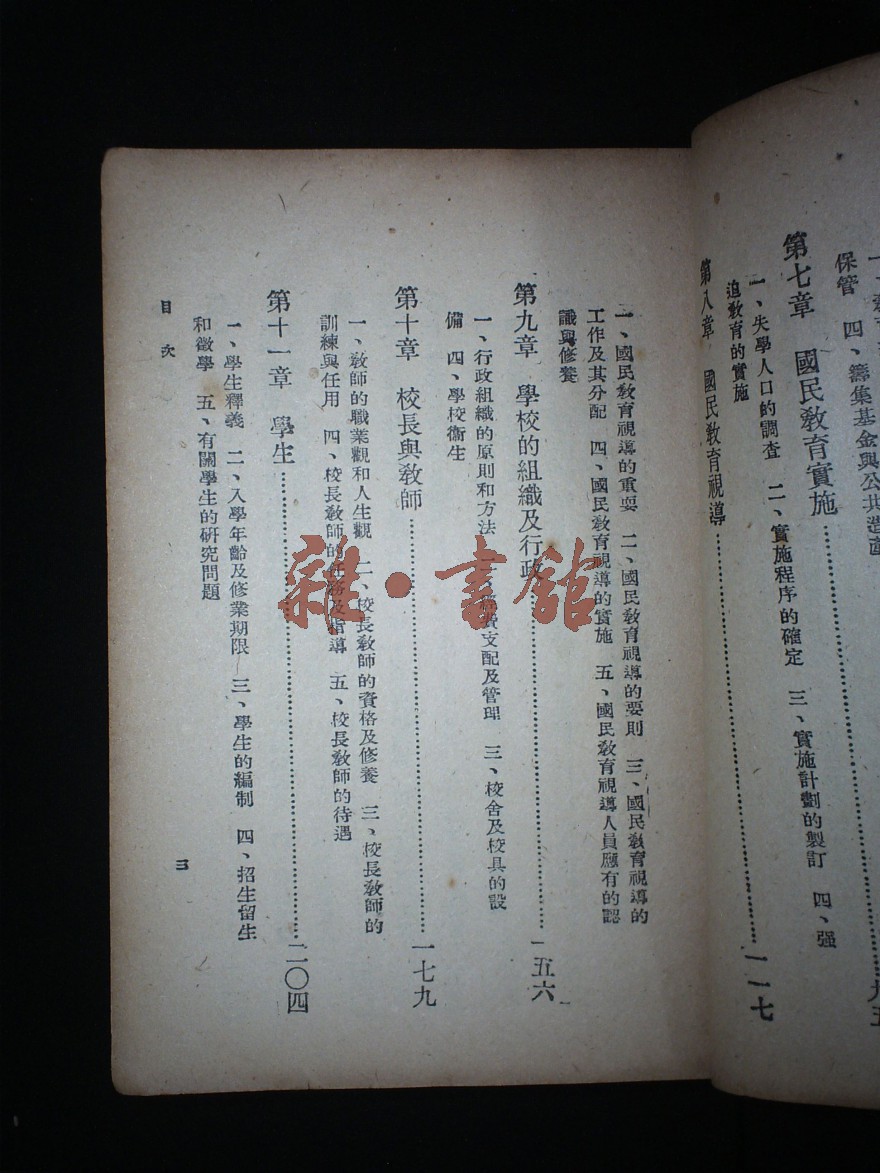 保管 四、籌集基金與公共造產
第七章 國民教育實施
一、失學人口的調查 二、實施程序的確定 三、實施計劃的製訂 四、强
迫教育的實施
第八章 國民教育視導……一一七
一、國民教育視導的重要 二、國民教育視導的要則 三、國民教育視導的
工作及其分配 四、國民教育視導的實施 五、國民教育視導人員應有的認
識與修養
第九章 學校的組織及行政……一五六
一、行政組織的原則和方法 支配及管理 三、校舍及校具的設
備 四、學校衞生
第十章 校長與教師……一七九
一、教師的職業觀和人生觀 二、校長教師的資格及修養 三、校長教師的
訓練與任用 四、校長教師的任務及指導 五、校長教師的待遇
第十一章 學生……二〇四
一、學生釋義 二、入學年齡及修業期限 三、學生的編制 四、招生留生
和徵學 五、有關學生的研究問題
目次
三
雜·書館